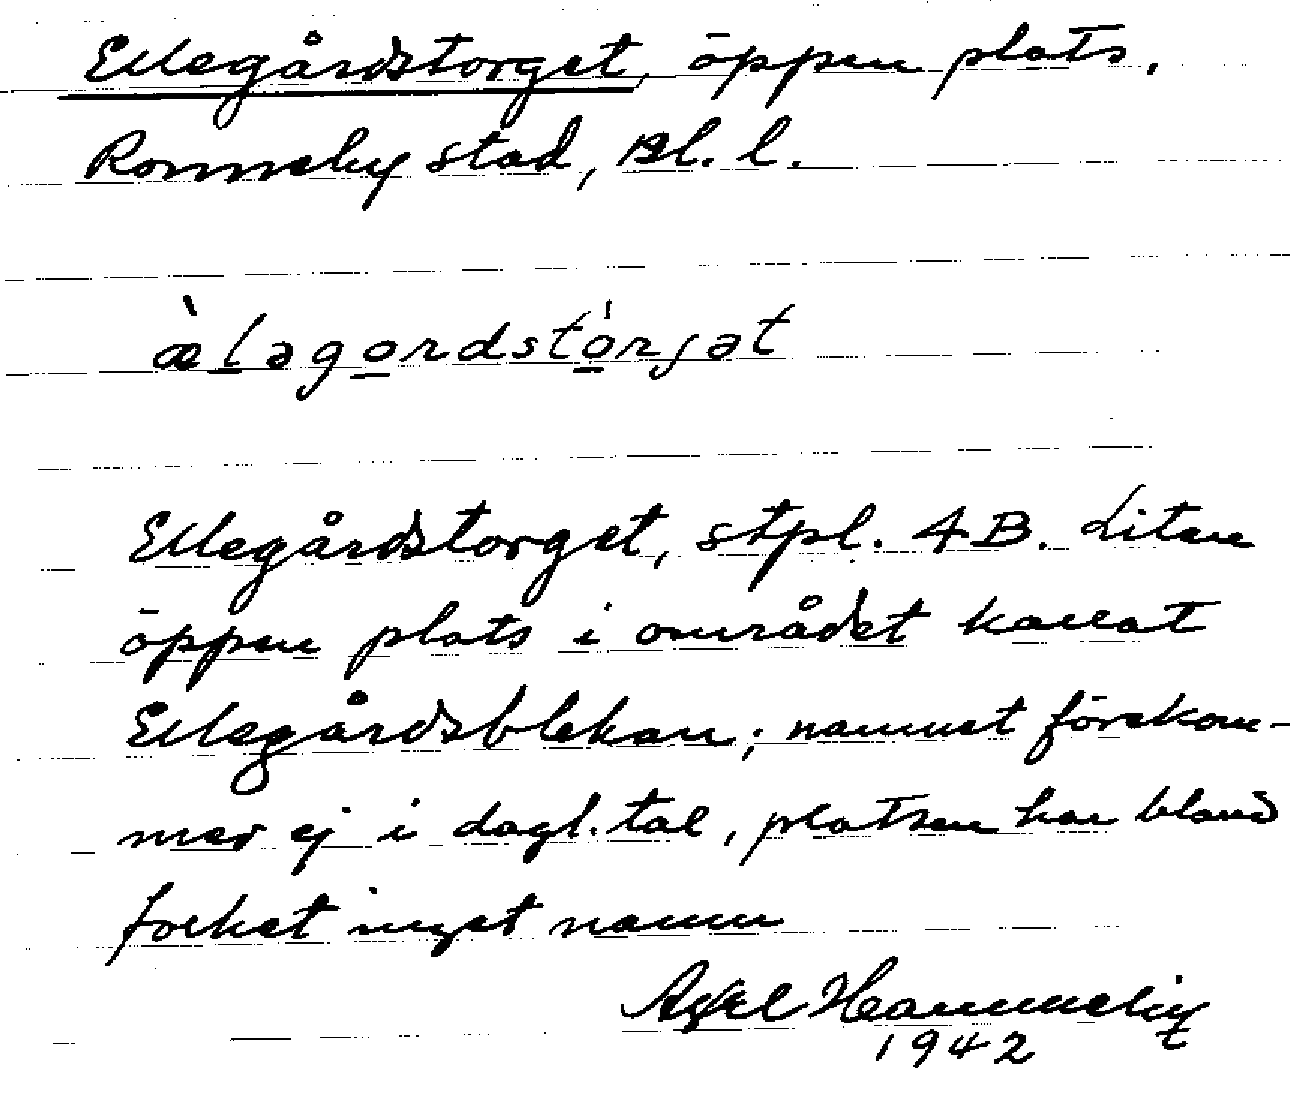 Ellegårdstorget, öppen plats,
Ronneby stad, Bl. l.
æ̀ləgordstórjət
Ellegårdstorget, stpl. 4B. Liten
öppen plats i området kallat
Ellegårdsblekan; namnet förekom-
mer ej i dagl. tal, platsen har bland
folket inget namn
Axel
1942